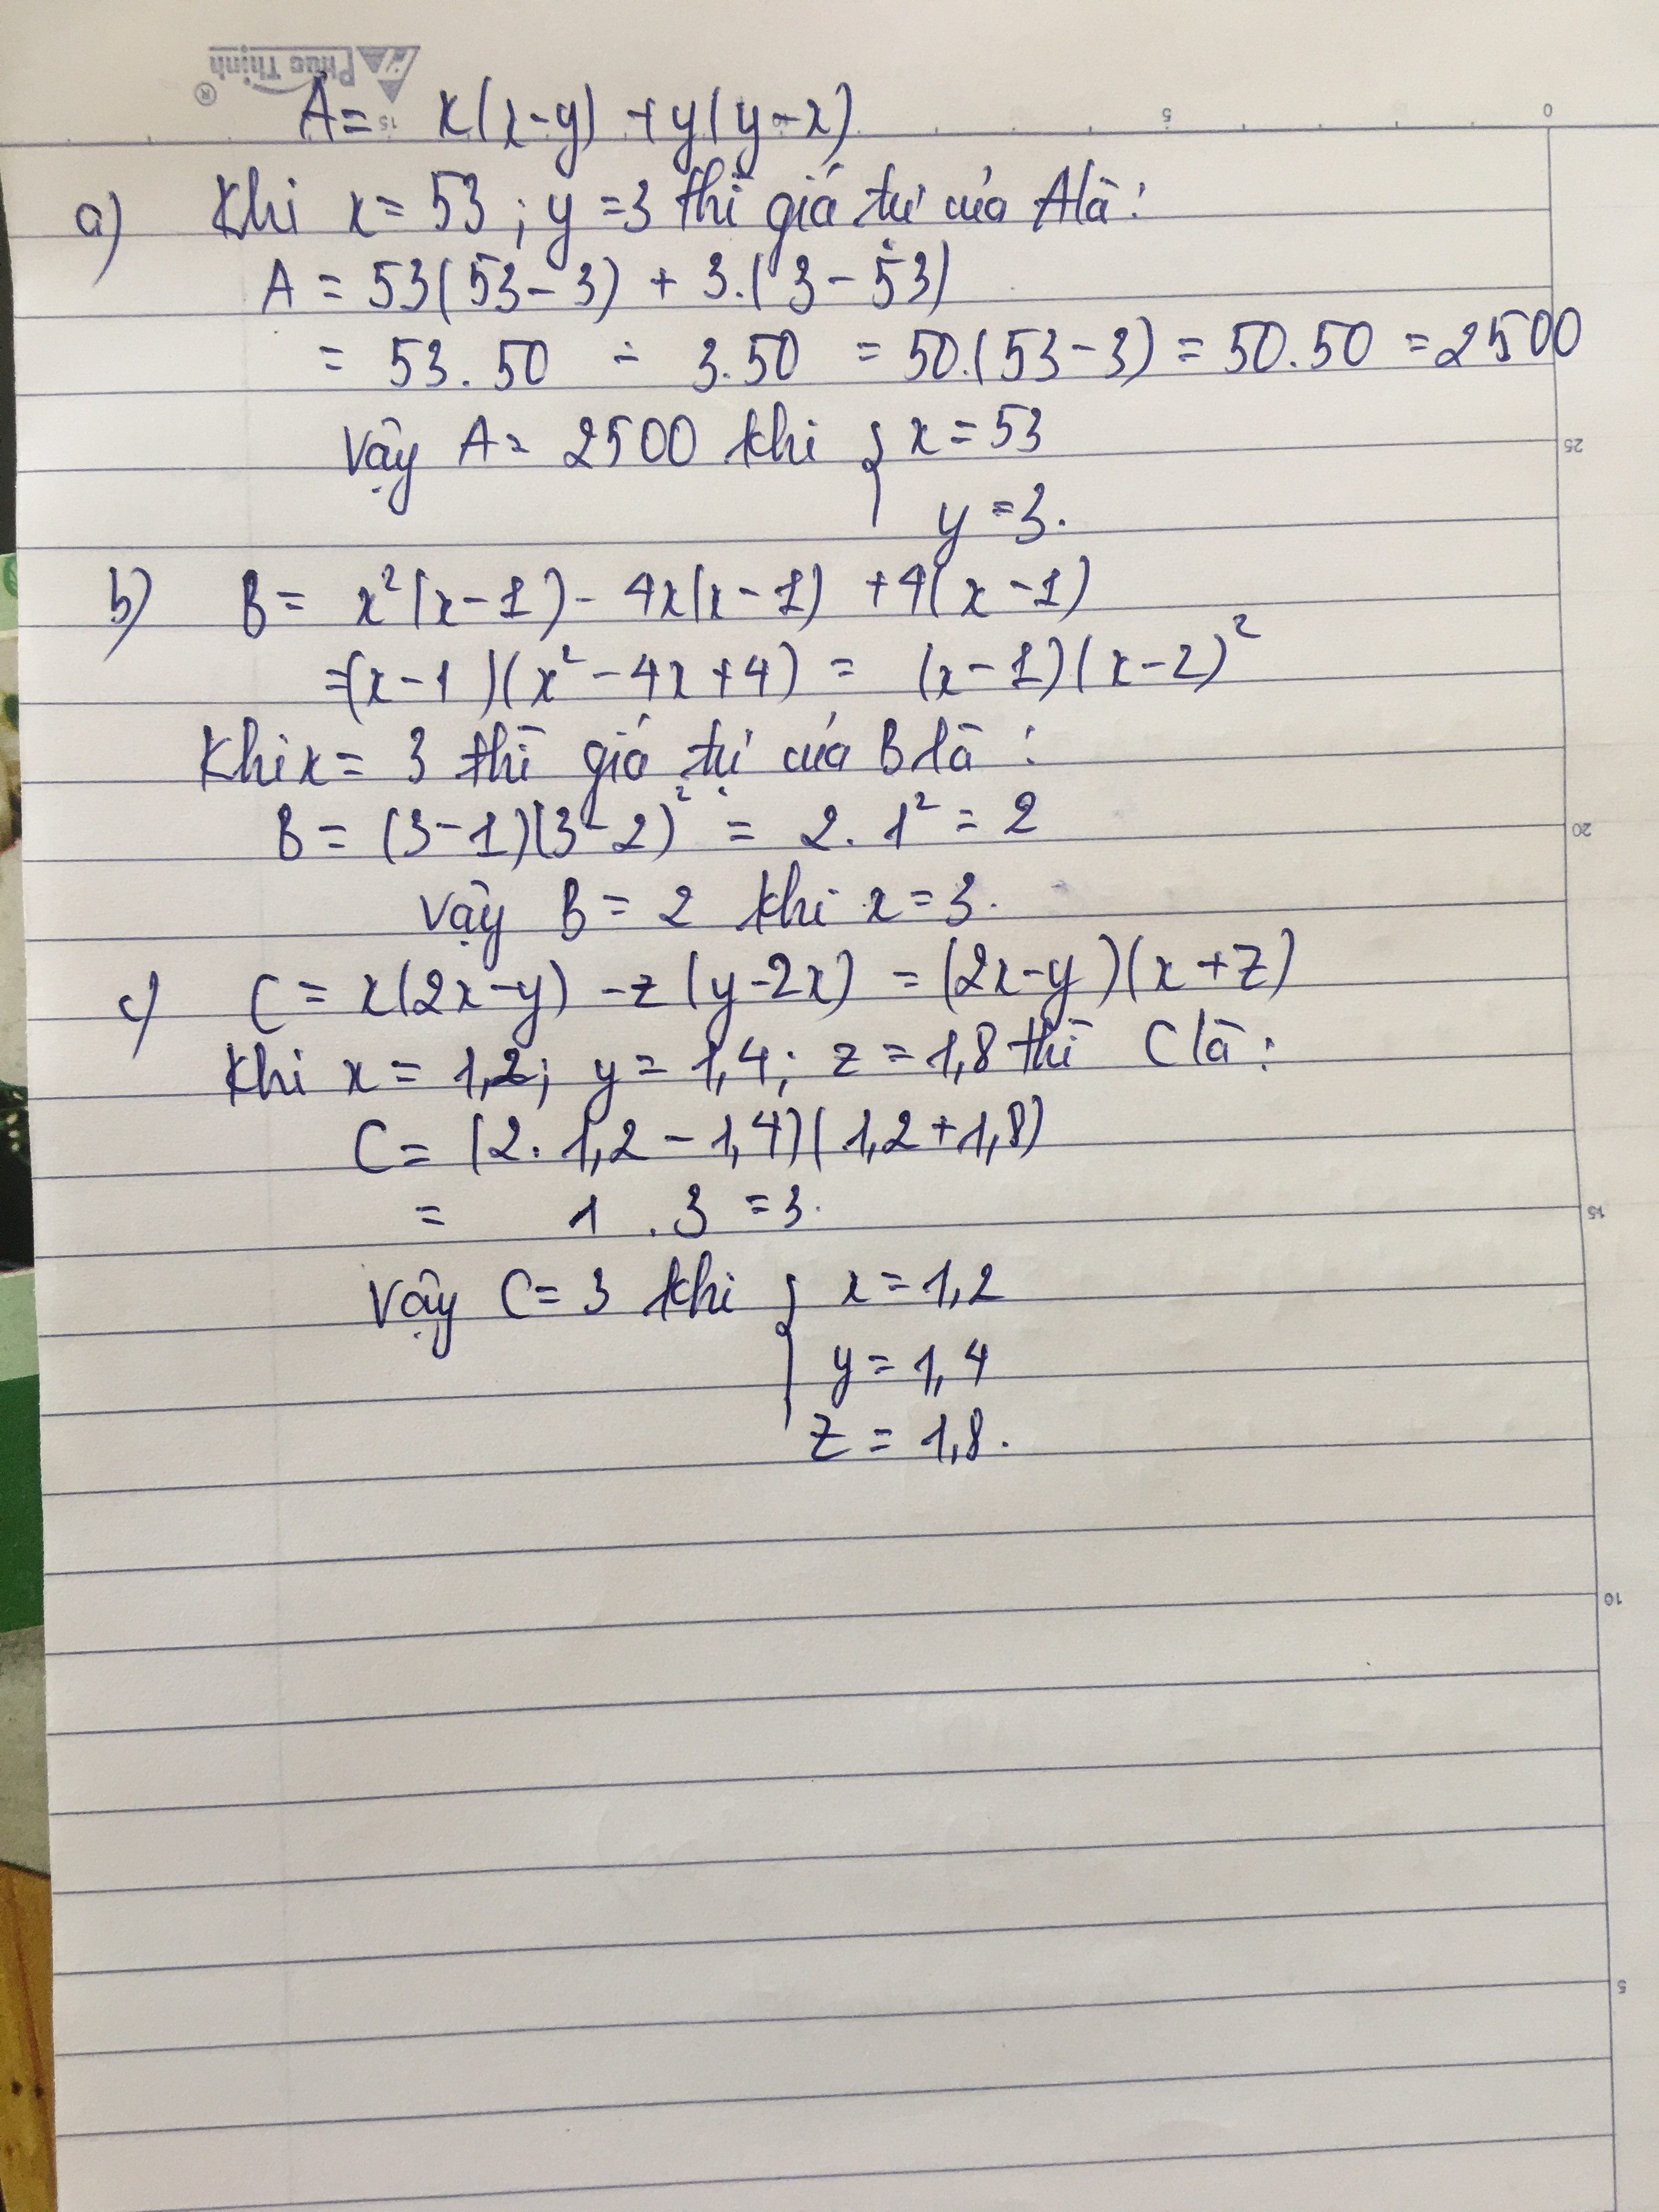 Phúc Thịnh ®
A = x(x-y) + y(y-x)
a) Khi x = 53 ; y = 3 thì giá trị của A là :
A = 53(53-3) + 3.(3-53)
= 53.50 - 3.50 = 50.(53-3) = 50.50 = 2500
Vậy A = 2500 khi { x = 53
y = 3.
b) B = x²(x-1) - 4x(x-1) + 4(x-1)
= (x-1)(x²-4x+4) = (x-1)(x-2)²
Khi x = 3 thì giá trị của B là :
B = (3-1)(3-2)² = 2.1² = 2
Vậy B = 2 khi x = 3.
c) C = x(2x-y) - z(y-2x) = (2x-y)(x+z)
Khi x = 1,2; y = 1,4; z = 1,8 thì C là :
C = (2.1,2-1,4)(1,2+1,8)
= 1 . 3 = 3.
Vậy C = 3 khi { x = 1,2
y = 1,4
z = 1,8.
0
5
15
25
20
15
10
5